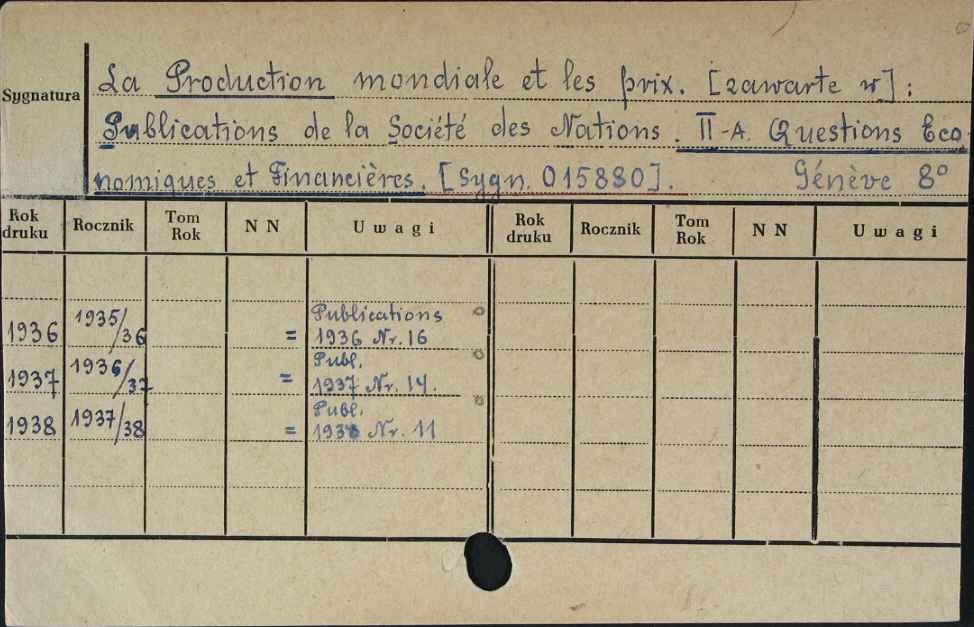 La Production mondiale et les prix. [zawarte w]:
Sygnatura
Publications de la Société des Nations. II-A. Questions Eco
nomiques et Financières. [Sygn. 015880]. Génève 8°
Rok druku Rocznik Tom Rok N N Uwagi Rok druku Rocznik Tom Rok N N Uwagi
1936 1935/36 = Publications 1936 Nr. 16
1937 1936/37 = Publ. 1937 Nr. 14.
1938 1937/38 = Publ. 1938 Nr. 11